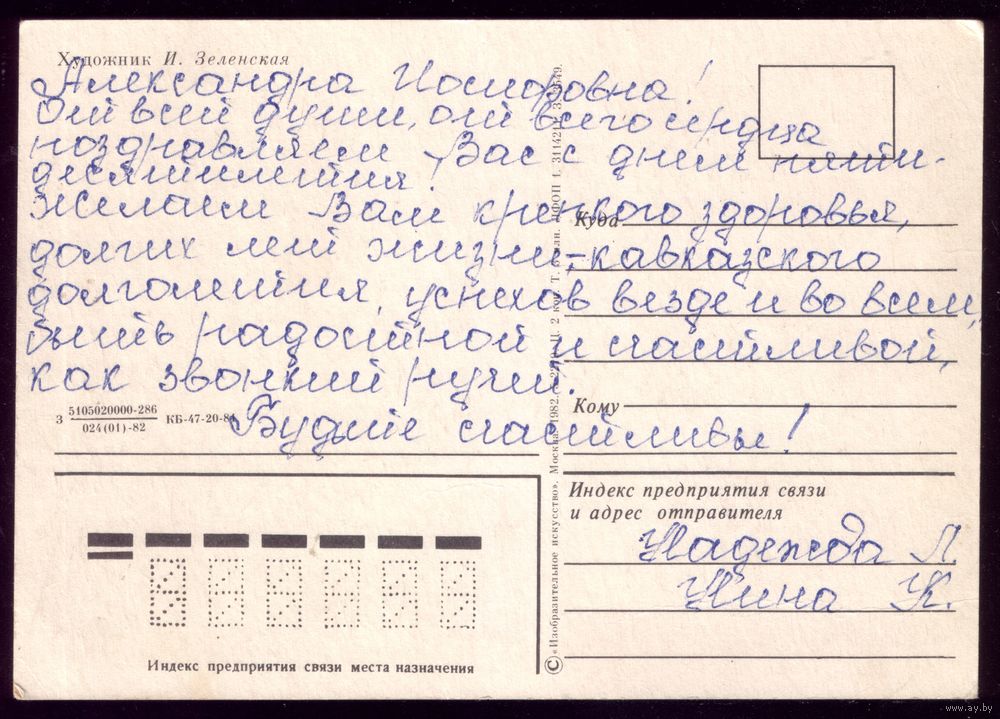 Художник И. Зеленская
Александра Иосифовна!
От всей души, от всего сердца
поздравляем Вас с днем пяти-
десятилетия!
Желаем Вам крепкого здоровья,
долгих лет жизни,-кавказского
долголетия, успехов везде и во всем,
быть радостной и счастливой,
как звонкий ручей.
Будьте счастливы!
Куда
Кому
З 5105020000-286
024(01)-82 КБ-47-20-81
Индекс предприятия связи
и адрес отправителя
Надежда Л.
Нина К.
Индекс предприятия связи места назначения
© «Изобразительное искусство». Москва. 1982.
www.ay.by